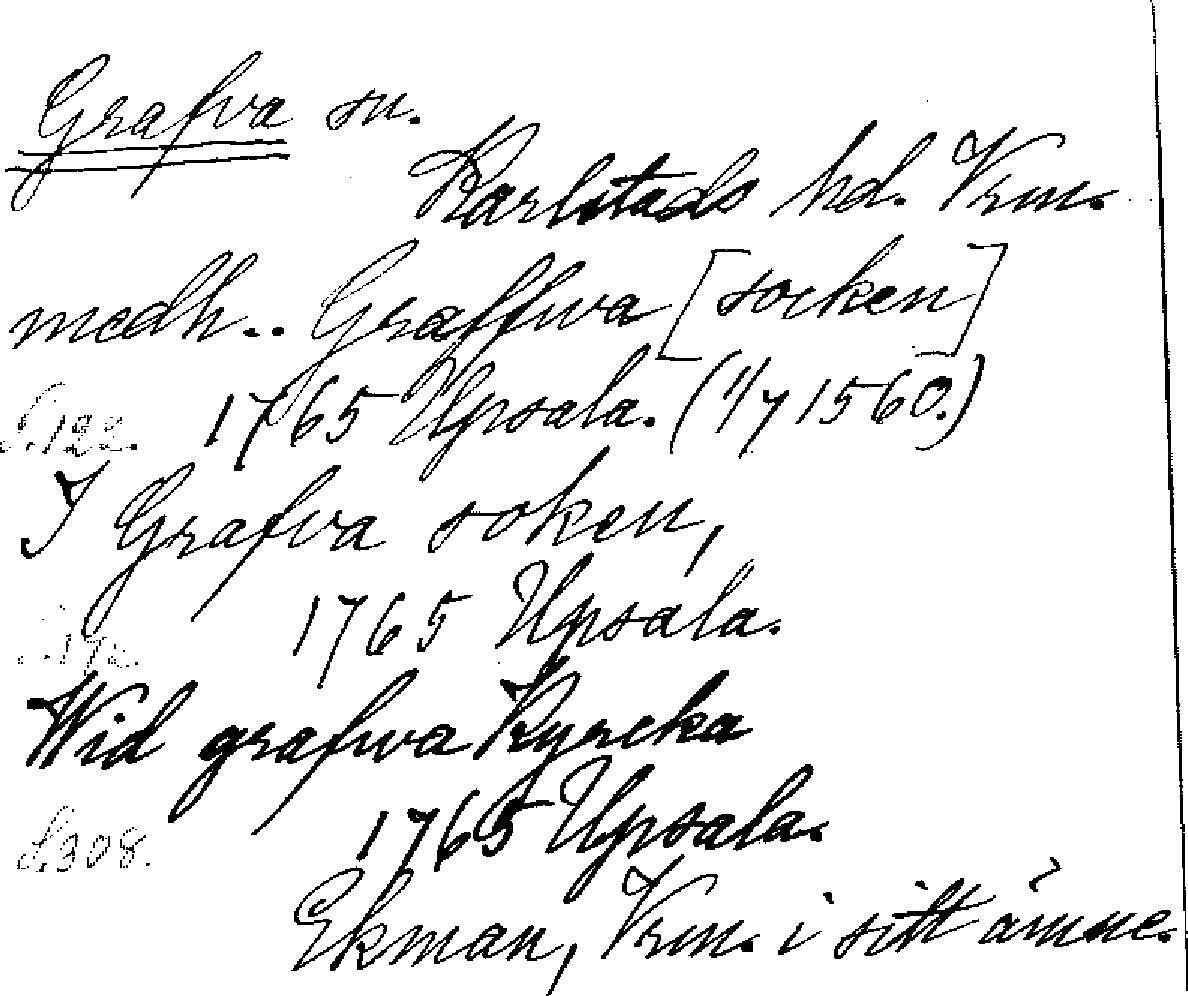 Grafva sn.
Karlstads hd. Vrm.
medh.. Graffwa [socken]
S. 122. 1765 Upsala. (1/7 1560.)
I Grafva soken,
1765 Upsala.
Wid grafwa Kyrcka
S. 308. 1765 Upsala.
Ekman, Vrm. i sitt ämne.